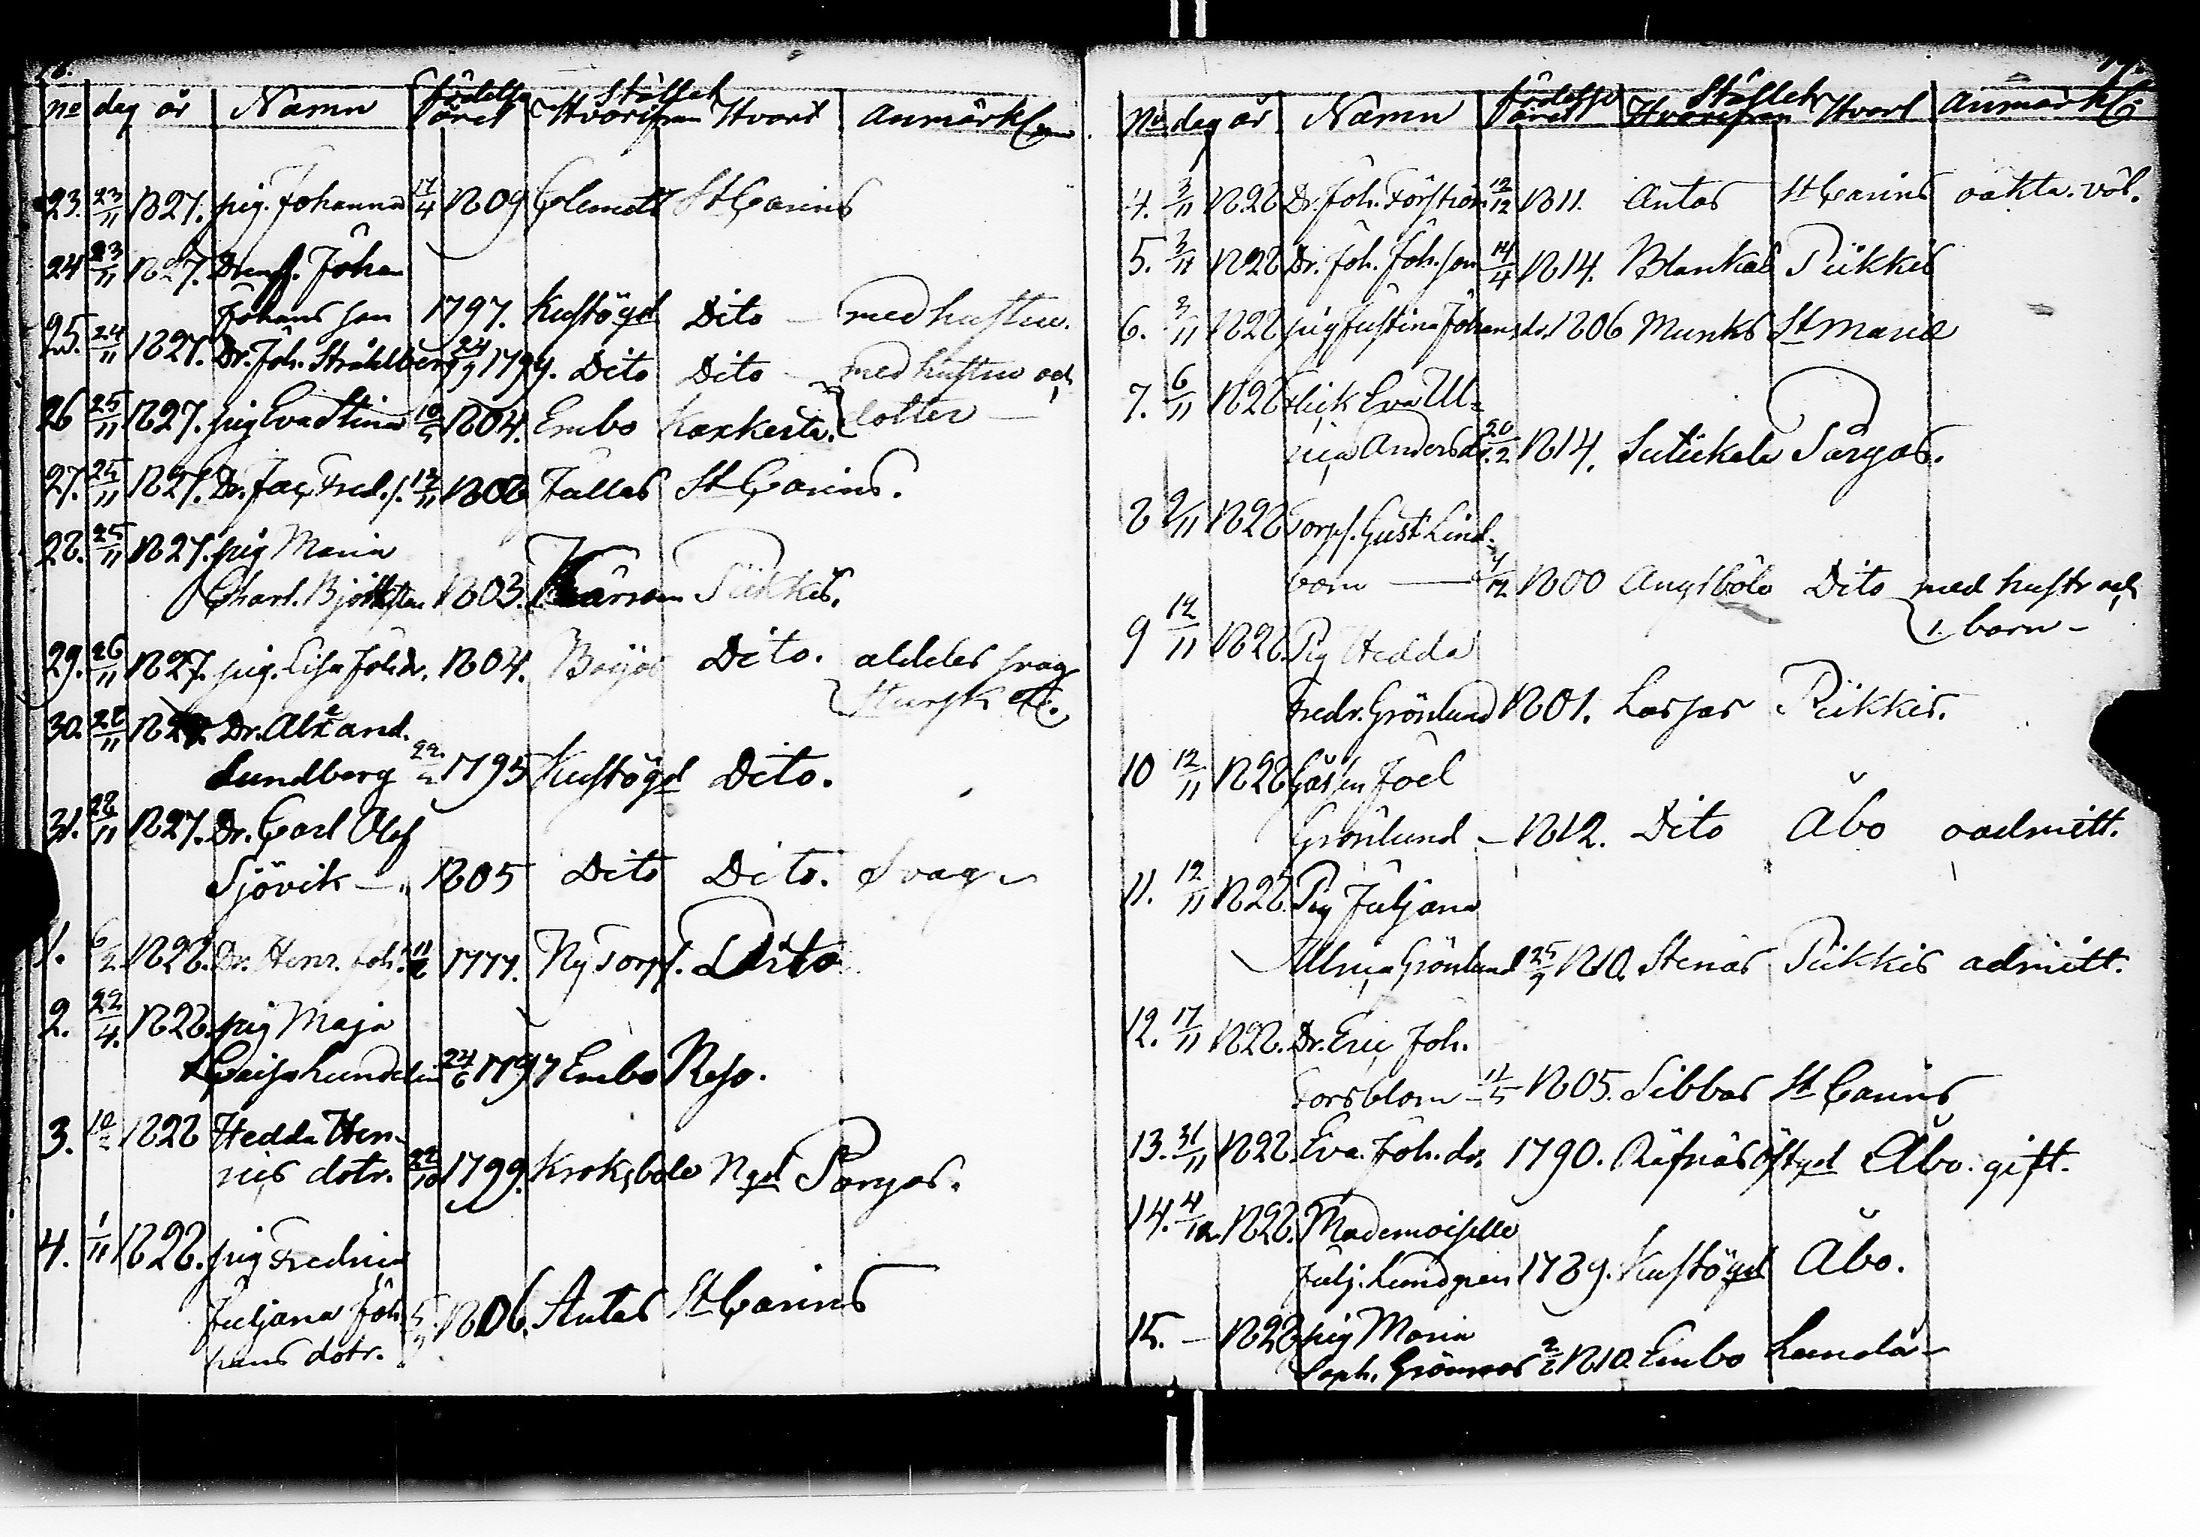 16.
no dag år Namn födelse året Stället Hvarifrån Hvart Anmärkn
23. 23/11 1827. pig. Johanna 17/4 1809 Clemets St Carins
24 23/11 1827. Dreng. Johan
Johans son 1797. Kustögd Dito - med hustru.
25. 24/11 1827. Dr. Joh. Stråhlberg 24/9 1799. Dito Dito - med hustru och
26 25/11 1827. pig Eva Stina 10/5 1804. Embo Karkerta. dotter -
27. 25/11 1827. Dr. Jac. Fred. s. 12/11 1808 Jallas St Carins.
28. 25/11 1827. pig Maria
Charl. Björksten 1803. Kärsam Piikkis.
29. 26/11 1827. pig. Lisa Joh. dr. 1804. Böijas Dito. aldeles svag
Stursk &c.
30. 28/11 1827. Dr. Alexand.
Lundberg 22 1795 Kustögd Dito.
31. 28/11 1827. Dr. Carl Olof
Sjövik - 1805 Dito Dito. Svag
1. 6/2 1828. Dr. Henr. Joh. 1777. Ny Torp. Dito
2. 22/4. 1828. pig Maja
Caisa Lundelin 24/6 1797 Embo Reso.
3. 1828 Hedda Hen-
rics dotr. 22/10 1799. Kroksbole Ngd Pargas.
4. 1/11 1828. pig Fredrica
Juljana Joh
hans dotr. 5/9 1806. Antas St Carins
17.
No dag år Namn födelse året Stället Hvarifrån Hvart Anmärkn
4. 3/11 1828 Dr. Joh. Forström 12/12 1811. Antas St Carins oäkta. väl.
5. 3/11 1828 Dr. Joh. Joh. son 14/4 1814. Blankas Piikkis
6. 3/11 1828 pig Justina Johans dr. 1806 Munks St Maria
7. 6/11 1828 flick Eva Ul-
rica Andersdr. 20/12 1814. Sutickala Pargas.
8 9/11 1828 Torp. Gust Lind-
bom - 1800 Angsböle Dito med hustr och
1. barn -
9 12/11 1828. Pig Hedda
Fredr. Grönlund 1801. Lassas Piikkis.
10 12/11 1828 Gåsen Joel
Grönlund - 1812. Dito Åbo oadmitt.
11. 12/11 1828. Pig Juljana
Ulrica Grönlund 25/9 1810. Stenas Piikkis admitt.
12. 17/11 1828. Dr. Eric Joh.
Forsblom - 11/5 1805. Sibbas St Carins
13. 31/11 1828. Eva. Joh. dr. 1790. Räfnäs Östgd Åbo. gift.
14. 4/12. 1828. Mademoiselle
Julj. Lundgren 1789. Kustögd Åbo.
15. - 1828 pig Maria
Soph. Grönroos 2/2 1810. Embo Lundo -